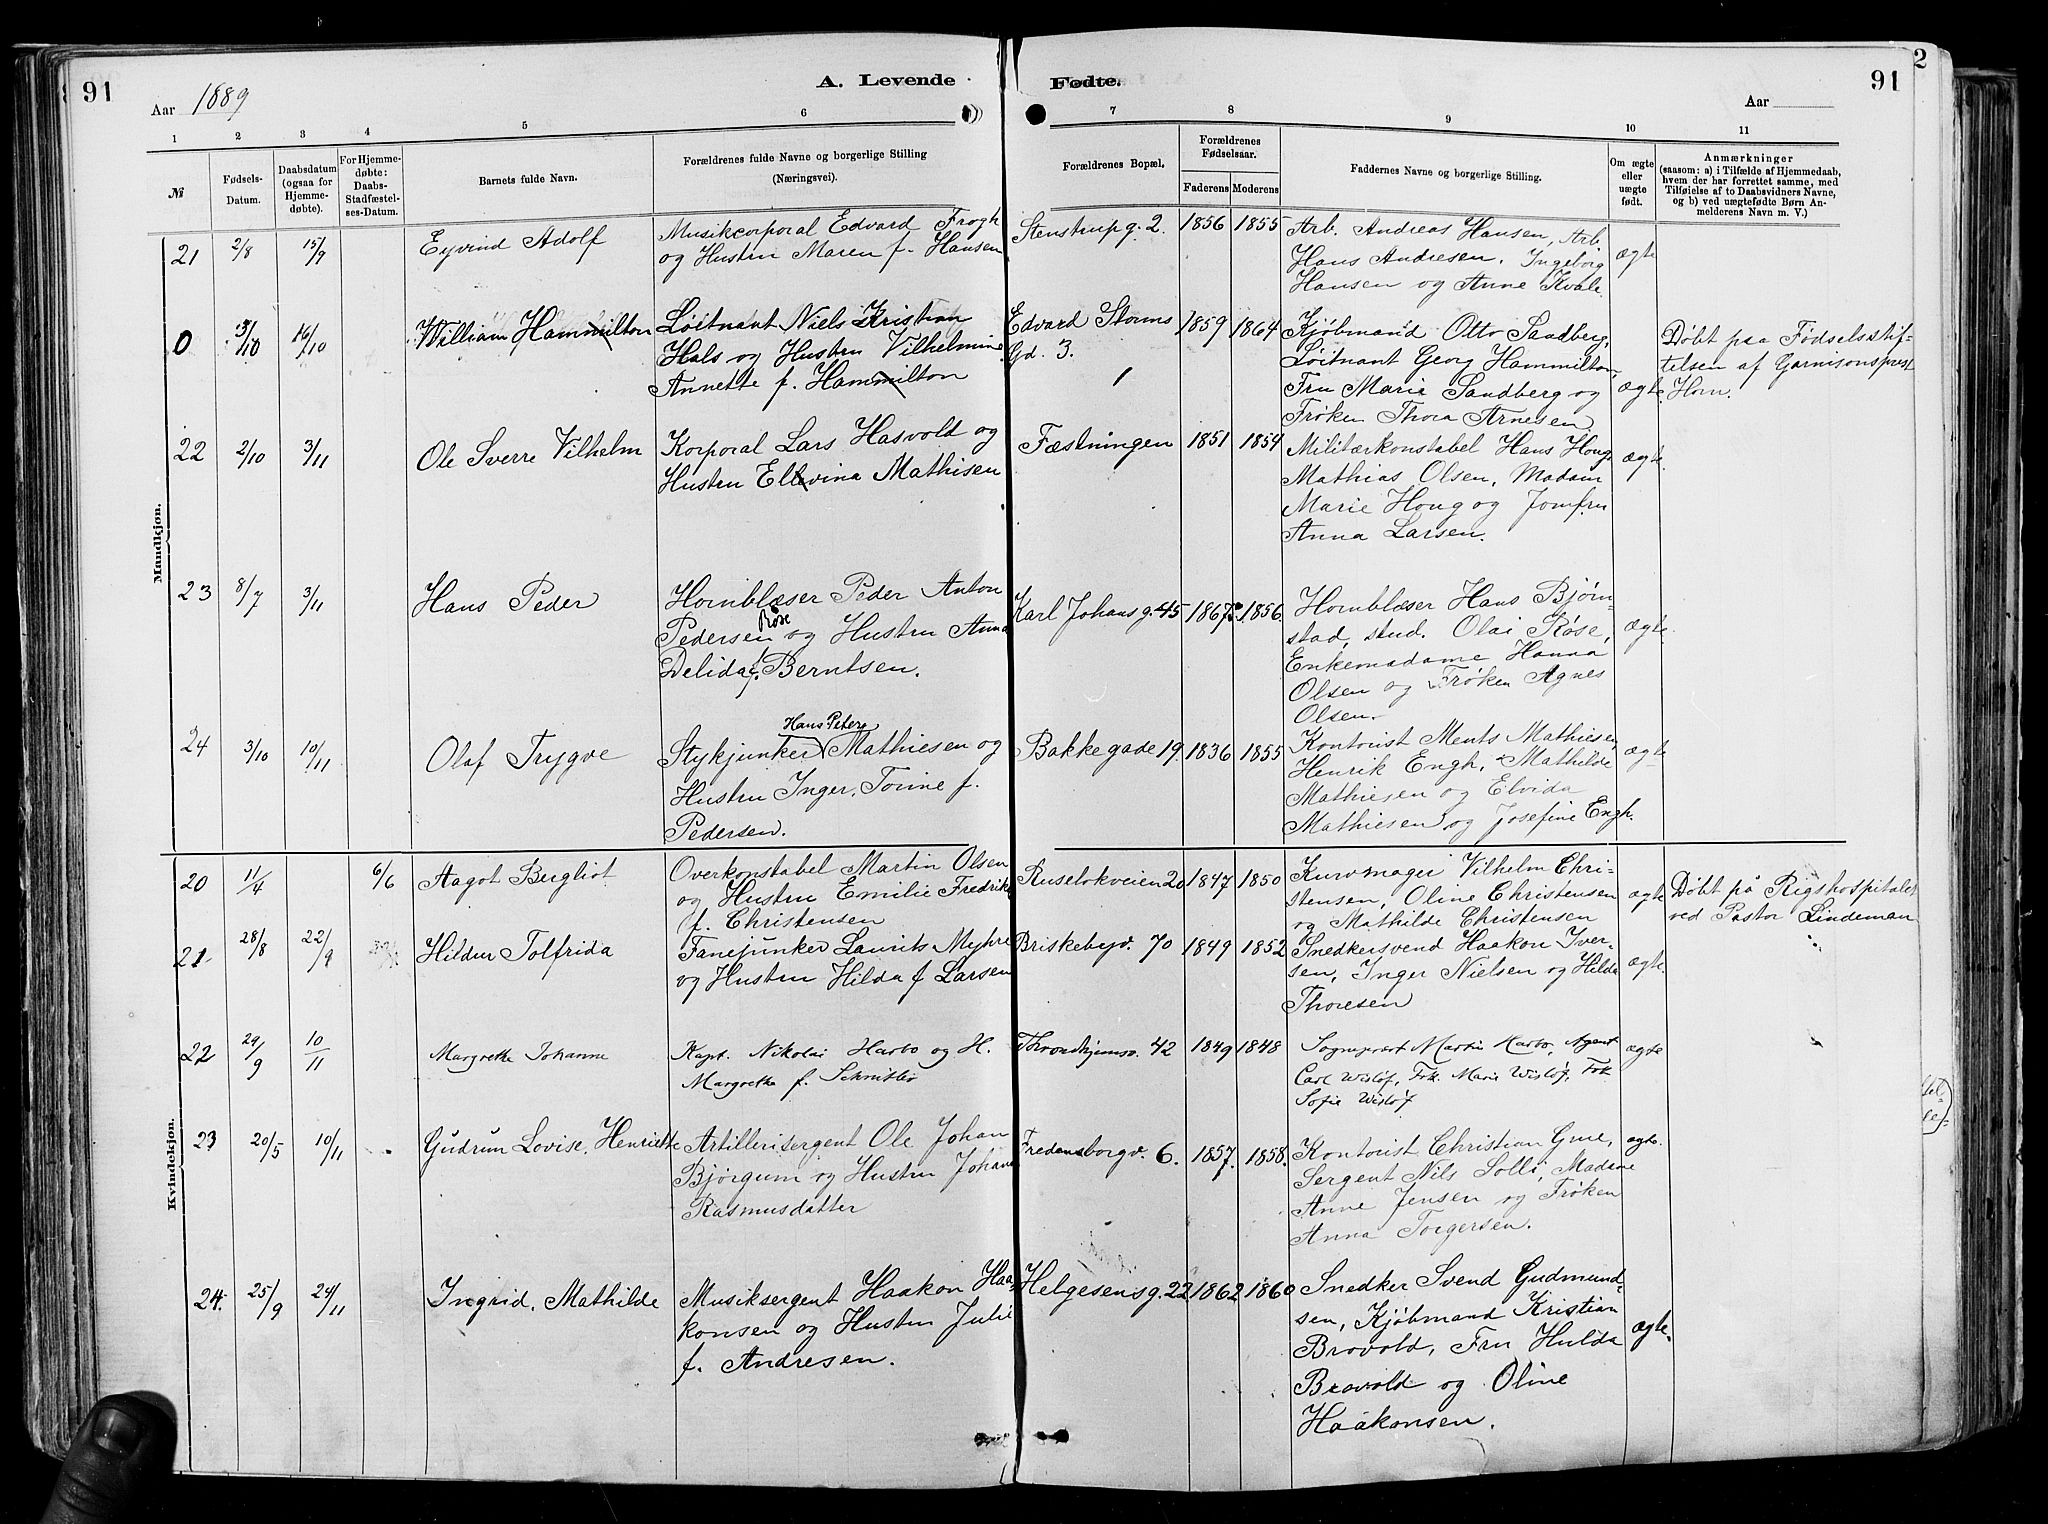 91
Aar 1889
A. Levende Fødte.
91
2
Aar
1 2 3 4 5 6 7 8 9 10 11
№
Fødsels-Datum.
Daabsdatum (ogsaa for Hjemmedøbte).
For Hjemmedøbte: Daabs-Stadfæstelses-Datum.
Barnets fulde Navn.
Forældrenes fulde Navne og borgerlige Stilling (Næringsvei).
Forældrenes Bopæl.
Forældrenes Fødselsaar.
Faderens Moderens
Faddernes Navne og borgerlige Stilling.
Om ægte eller uægte født.
Anmærkninger
(saasom: a) i Tilfælde af Hjemmedaab,
hvem der har forrettet samme, med
Tilføielse af to Daabsvidners Navne,
og b) ved uægtefødte Børn Anmelderens Navn m. V.)
Mandkjøn.
21 2/8 15/9 Eyvind Adolf
Musikcorporal Edvard Frogh
og Hustru Maren f. Hansen
Stenstrupg. 2. 1856 1855
Arb. Andreas Hansen, Arb.
Hans Andresen, Ingeborg
Hansen og Anne Kvale.
ægte
0 3/10 16/10 William Hammilton
Løitnant Niels Kristian
Hals og Hustru Vilhelmine
Annette f. Hammilton
Edvard Storms
Gd. 3. 1859 1864
Kjøbmand Otto Sandberg,
Løitnant Georg Hammilton,
Fru Marie Sandberg og
Frøken Thora Arnesen
ægte.
Døbt paa Fødselsstif-
telsen af Garnisonsprest
Horn.
22 2/10 3/11 Ole Sverre Vilhelm
Korporal Lars Hasvold og
Hustru Ellevina Mathisen
Fæstningen 1851 1854
Militærkonstabel Hans Houg
Mathias Olsen, Madam
Marie Houg og Jomfru
Anna Larsen.
ægte.
23 8/7 3/11 Hans Peder
Hornblæser Peder Anton
Pedersen Røse og Hustru Anna
Delida f. Berntsen.
Karl Johans g. 45 1867. 1856.
Hornblæser Hans Bjørn-
stad, stud. Olai Røse,
Enkemadame Hanna
Olsen og Frøken Agnes
Olsen.
ægte.
24 3/10 10/11 Olaf Trygve
Hans Peter
Stykjunker Mathiesen og
Hustru Inger Torine f.
Pedersen.
Bakkegade 19. 1836 1855
Kontorist Ments Mathiesen,
Henrik Engh, Mathilde
Mathiesen og Elvida
Mathiesen og Josefine Engh.
ægte
Kvindekjøn.
20 11/4 6/6 Aagot Bergliot
Overkonstabel Martin Olsen
og Hustru Emilie Fredrikke
f. Christensen
Ruseløkveien 20 1847 1850
Kurvmager Vilhelm Chri-
stensen, Oline Christensen
og Mathilde Christensen
ægte
Døbt på Rigshospitalet
ved Pastor Lindeman
21 28/8 22/9 Hildur Tolfrida
Fanejunker Laurits Myhre
og Hustru Hilda f Larsen
Briskebyv. 70 1849 1852
Snedkersvend Haakon Iver-
sen, Inger Nielsen og Hilda
Thoresen
ægte.
22 29/9 10/11 Margrethe Johanne
Kapt. Nikolai Harbo og H.
Margrethe f. Schnitler
Throndhjemsv. 42 1849 1848
Sogneprest Martin Harbo, Agent
Carl Wisløf, Frk. Marie Wisløf, Frk
Sofie Wisløf
ægte
23 20/5 10/11 Gudrun Lovise Henriette
Artillerisergent Ole Johan
Bjørgum og Hustru Johane
Rasmusdatter
Fredensborgv. 6. 1857. 1858.
Kontorist Christian Grue,
Sergent Nils Solli, Madame
Anne Jensen og Frøken
Anna Torgersen.
ægte.
24. 25/9 24/11 Ingrid Mathilde
Musiksergent Haakon Haa-
konsen og Hustru Julie
f. Andresen.
Helgesensg. 22 1862 1860
Snedker Svend Gudmund-
sen, Kjøbmand Kristian
Brovold, Fru Hulda
Brovold og Oline
Haakonsen.
ægte.